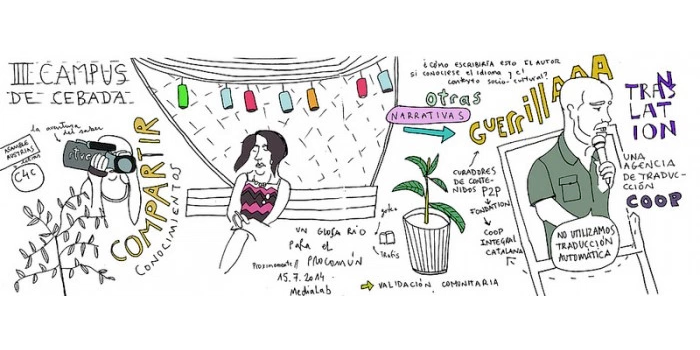 III CAMPUS
DE CEBADA
la aventura
del saber
rtve
ASAMBLEA
AUSTRIAS
C4C
COMPARTIR
CONOCIMIENTOS
UN GLOSARIO
PARA EL
PROCOMÚN
Proximamente
15.7.2014
MediaLab
¿CÓMO ESCRIBIRÍA ESTO EL AUTOR
SI CONOCIESE EL IDIOMA Y EL
CONTEXTO SOCIO-CULTURAL?
otras
NARRATIVAS
GUERRILLA
CURADORES
DE CONTE-
NIDOS P2P
FONDATION
COOP
INTEGRAL
CATALANA
VALIDACIÓN COMUNITARIA
NO UTILIZAMOS
TRADUCCIÓN
AUTOMÁTICA
TRANS
LATION
UNA
AGENCIA
DE TRADUC-
CIÓN
COOP